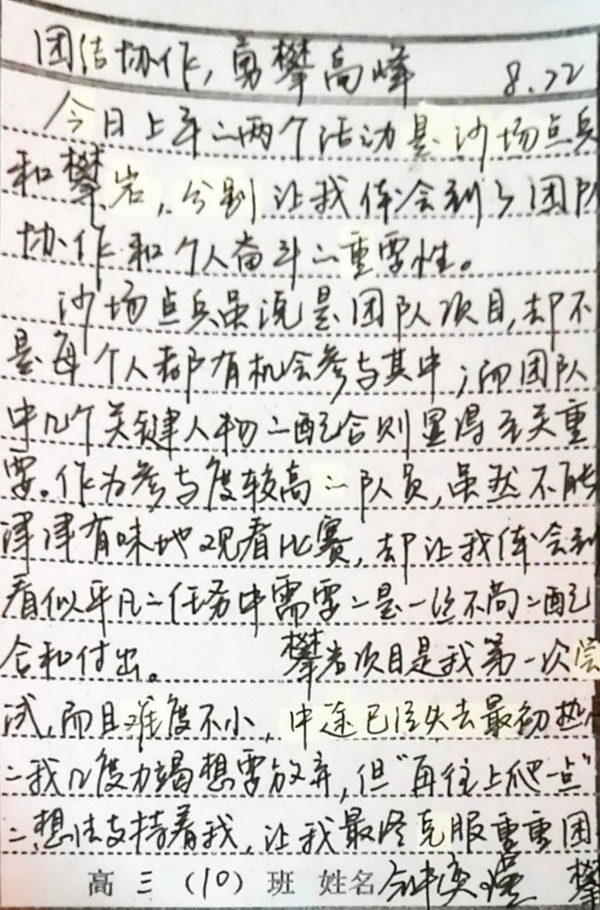 团结协作，勇攀高峰 8.22
今日上午的两个活动是沙场点兵
和攀岩，分别让我体会到了团队
协作和个人奋斗的重要性。
沙场点兵虽说是团队项目，却不
是每个人都有机会参与其中；而团队
中几个关键人物的配合则显得至关重
要。作为参与度较高的队员，虽然不能
津津有味地观看比赛，却让我体会到
看似平凡的任务中需要的是一丝不苟的配
合和付出。 攀岩项目是我第一次尝
试，而且难度不小，中途已经失去最初热
的我几度力竭想要放弃，但“再往上爬一点”
的想法支持着我，让我最终克服重重困
高三（10）班 姓名 攀